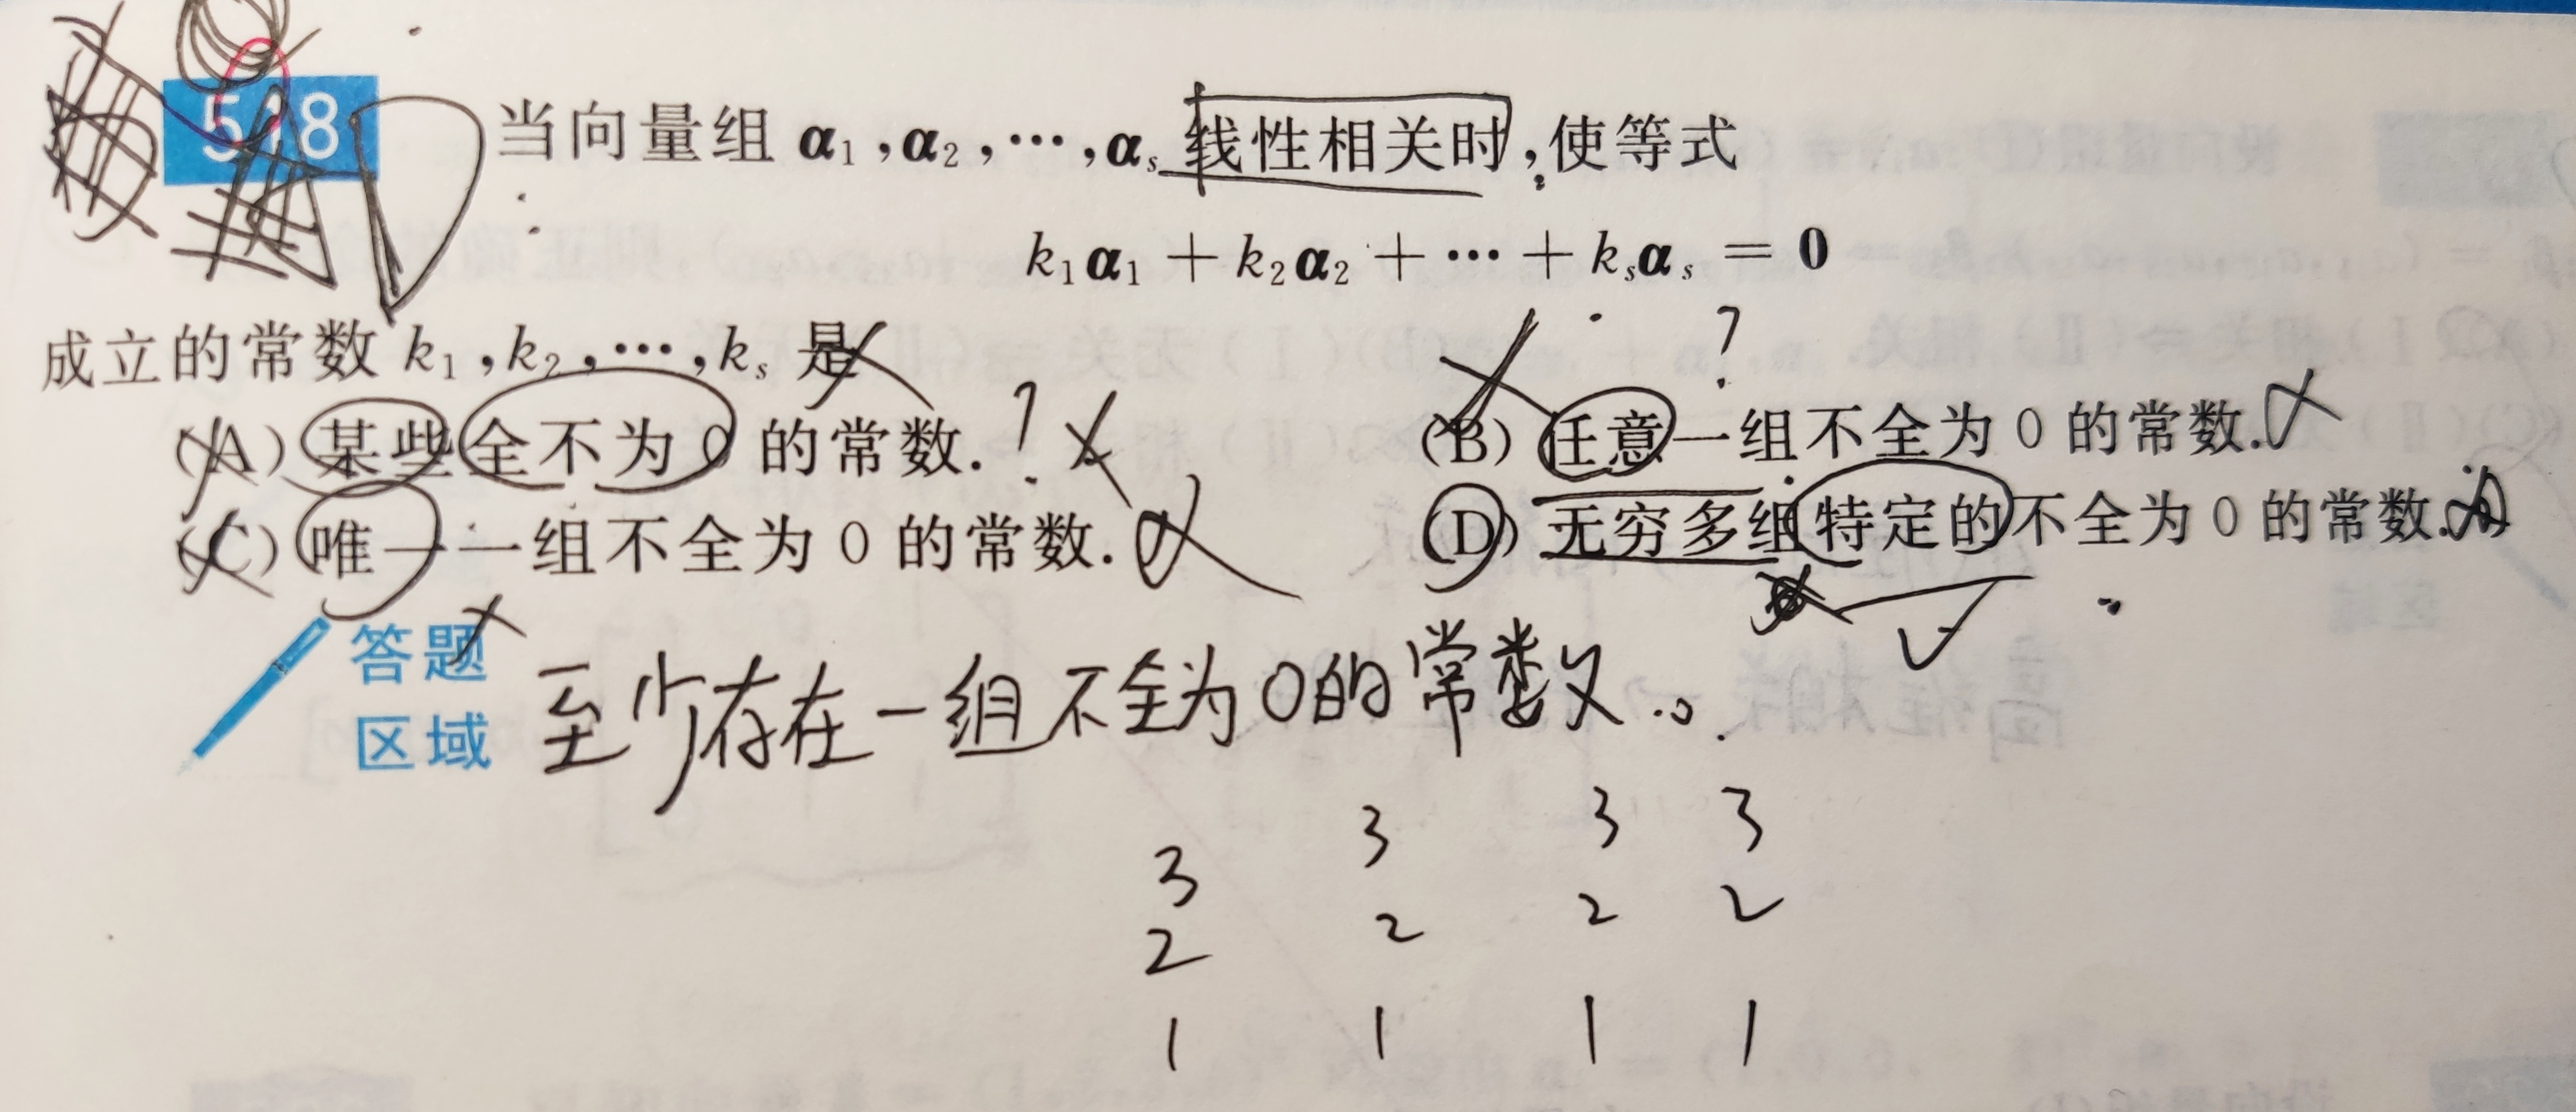 518 当向量组 α₁,α₂,…,αₛ 线性相关时,使等式
k₁α₁ + k₂α₂ + … + kₛαₛ = 0
成立的常数 k₁,k₂,…,kₛ 是
(A) 某些全不为 0 的常数. ? (B) 任意一组不全为 0 的常数. ?
(C) 唯一一组不全为 0 的常数. (D) 无穷多组特定的不全为 0 的常数.
答题
区域
至少存在一组不全为0的常数.
3 3 3 3
2 2 2 2
1 1 1 1